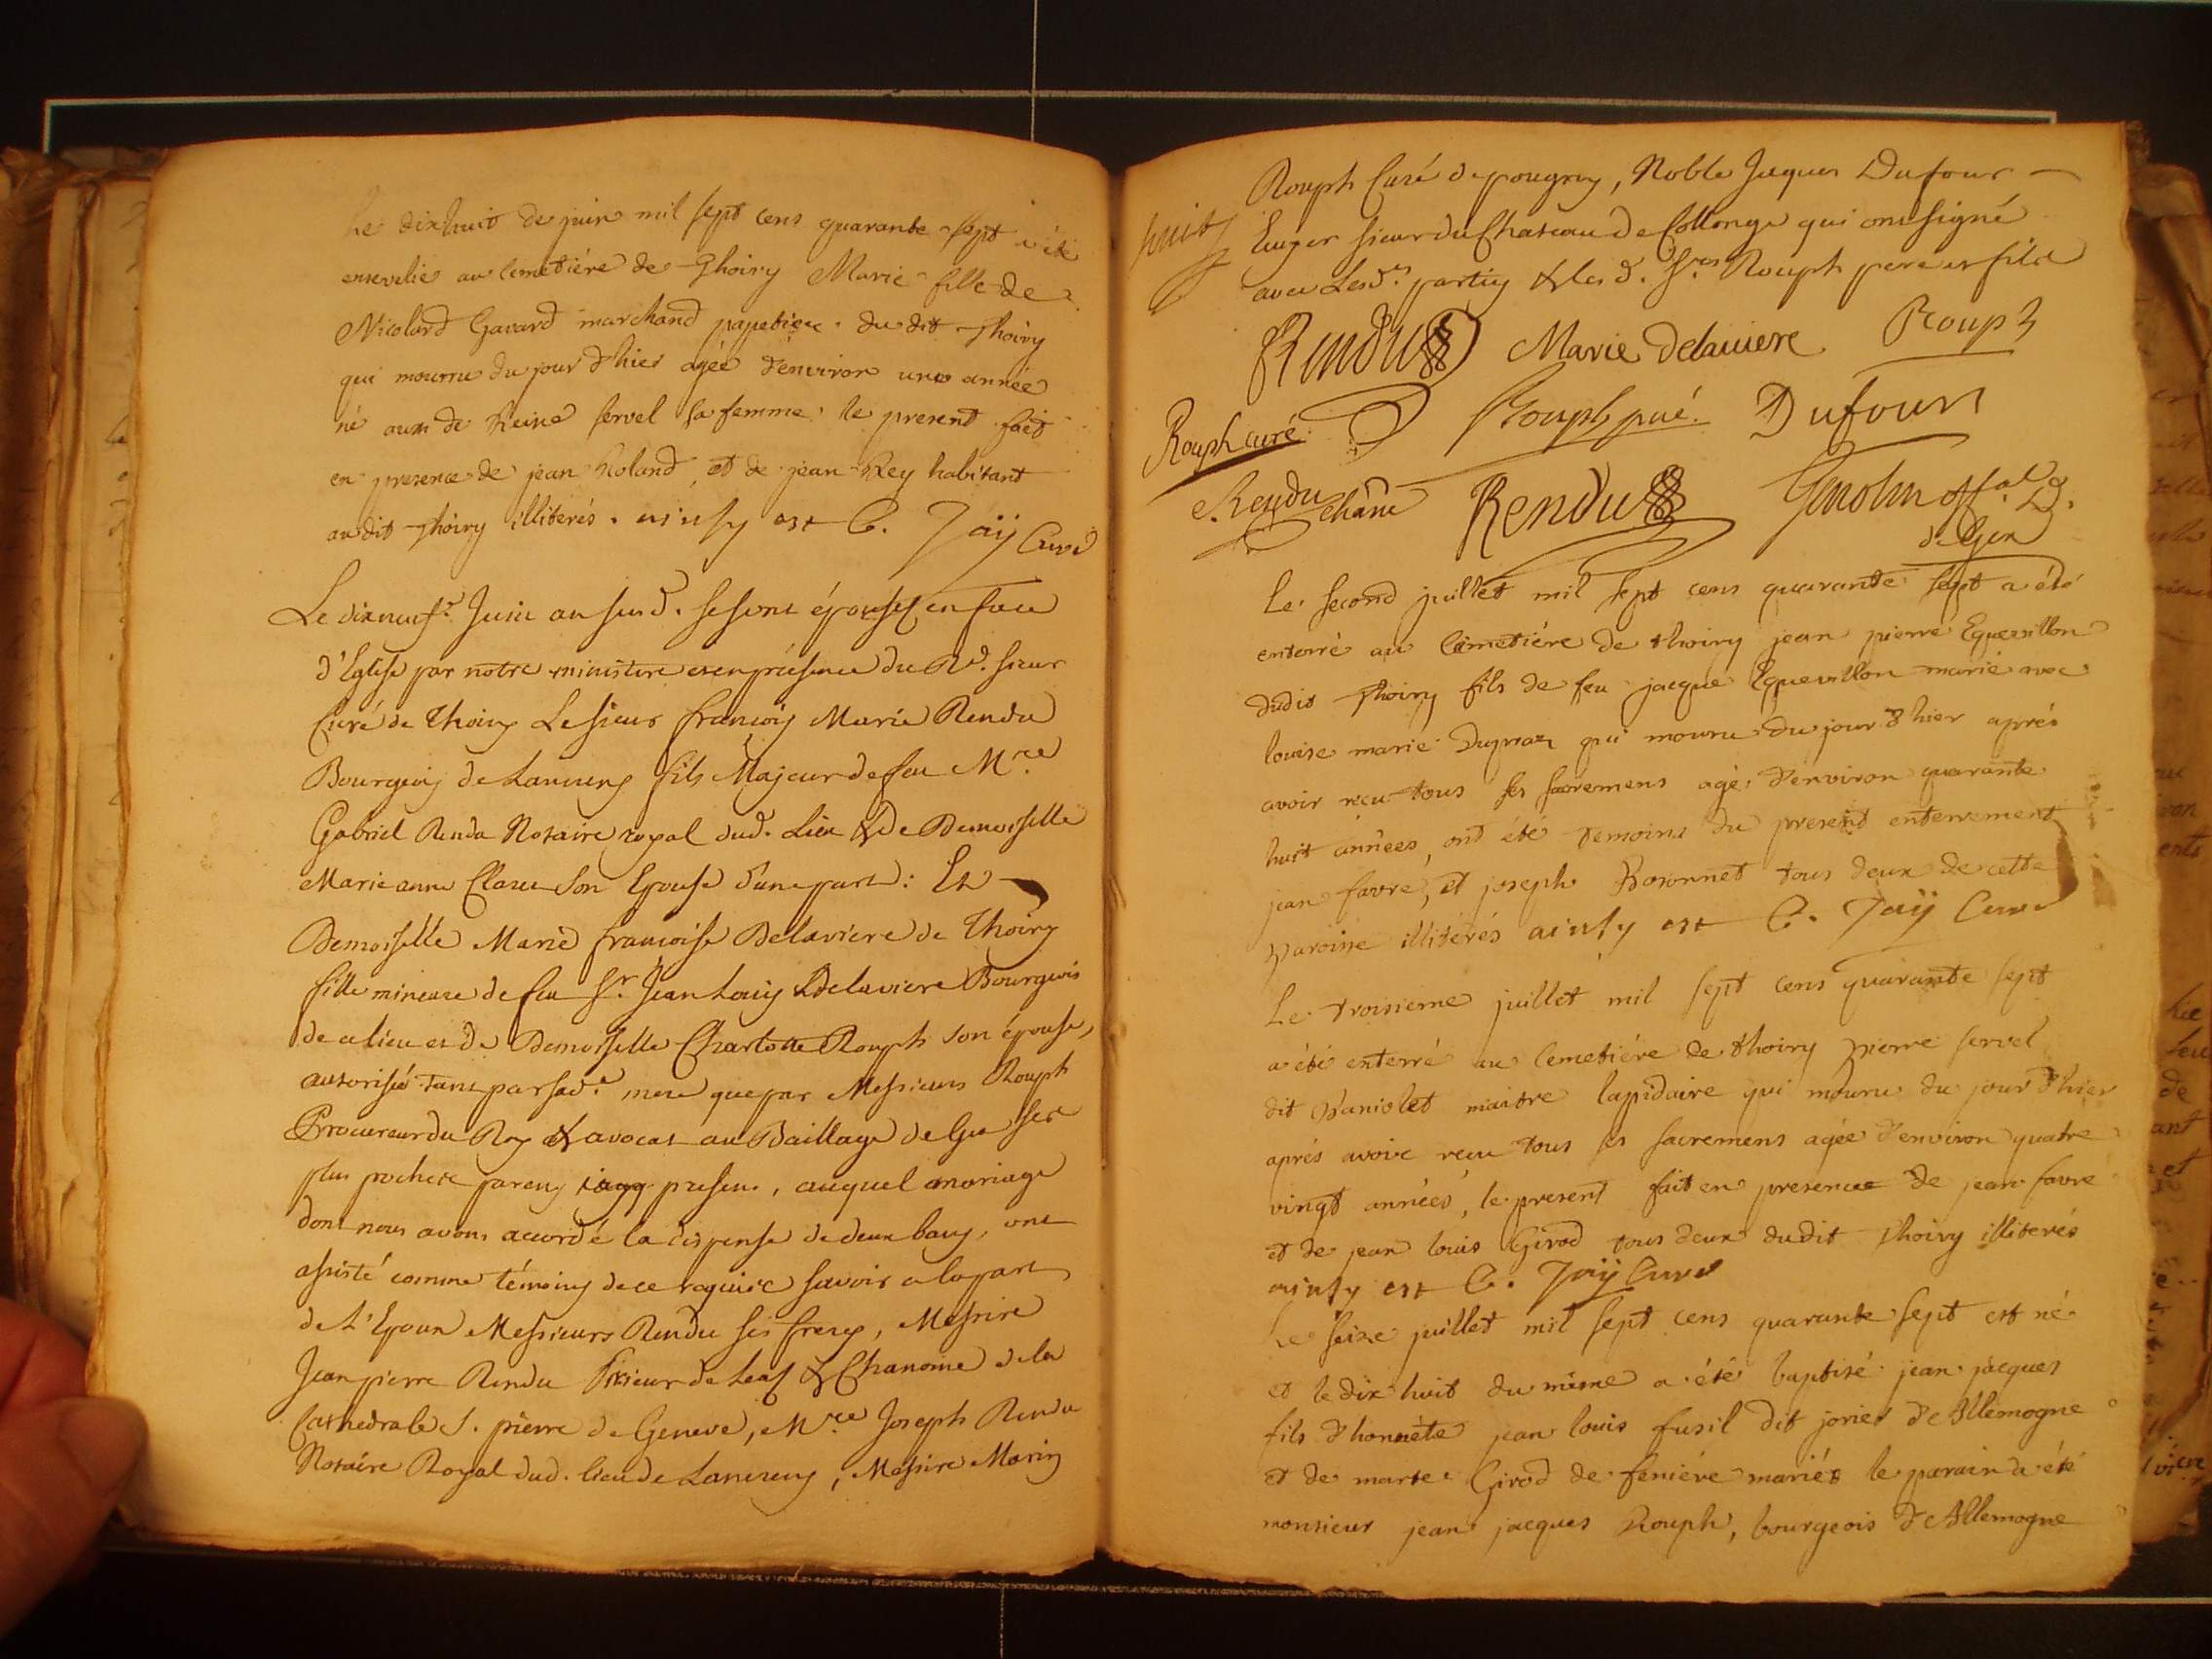 Le dixhuit de juin mil sept cens quarante sept a été
ensevelie au cemetiére de Thoiry Marie fille de
Nicolard Gavard marchand papetier du dit Thoiry
qui mourru du jour d'hier agée d'environ une année
né aussi de Reine Servel sa femme. le present fait
en presence de jean Roland, et de jean Rey habitant
audit Thoiry illiterés. ainsy est C. Jaÿ Curé
Le dixneufe. Juin an susd. se sont épousez en face
d'Eglise par notre ministere et en présence du Rd. sieur
Curé de Thoiry Le sieur françois Marie Rendu
Bourgeois de Lancrens fils Majeur de feu Mre
Gabriel Rendu Notaire royal dud. Lieu & De Demoiselle
Marie anne Claret Son Epouse d'une part: Et
Demoiselle Marie françoise Delaviere de Thoiry
fille mineure de feu Sr. Jean Louis Delaviere Bourgeois
de ce lieu et de Demoiselle Charlotte Rouph son épouse,
autorisée tant par sade. mere que par Messieurs Rouph
Procureur du Roy & avocat au Bailliage de Gex ses
plus prochere parens icy presens, auquel mariage
dont nous avons accordé la dispense de deux bans, ont
assisté comme témoins de ce requis savoir a la part
de L'Epoux Messieurs Rendu ses freres, Messire
Jean pierre Rendu Prieur de Leaz & Chanoine de la
Cathedrale S. pierre de Geneve, Mre Joseph Rendu
Notaire Royal dud. lieu de Lancrens, Messire Marin
Rouph Curé de pougny, Noble Jaques Dufour
suit
Ecuyer sieur du Chateau de Collonge qui ont signé
avec Lesds. parties & les d. Srs Rouph pere et fils
Rendu Marie delaviere Rouph
Rouph curé Rouph Dufour
Rendu chane Rendu offal
de Gex
Le second juillet mil sept cens quarante sept a été
enterré au Cemetiére de thoiry jean pierre Equevillon
dudit Thoiry fils de feu jacque Equevillon marié avec
louise marie Dupraz qui mouru du jour d'hier aprés
avoir recu tous ses sacremens agé d'environ quarante
huit années, ont été temoins du present enterrement
jean favre, et joseph Bosonnet tous deux de cette
paroisse illiterés ainsy est C. Jaÿ Curé
Le troisieme juillet mil sept cens quarante sept
a été enterré au Cemetiére de thoiry pierre servel
dit Baniolet maitre lapidaire qui mouru du jour d'hier
aprés avoir recu tous ses sacremens agée d'environ quatre
vingt années, le present fait en presence de jean favre
et de jean louis Girod tous deux dudit Thoiry illiterés
ainsy est C. Jaÿ Curé
Le seize juillet mil sept cens quarante sept est né
et le dix huit du même a été baptisé jean jacques
fils d'honnête jean louis fusil dit joriet d'Allemogne
et de marte Girod de feniére mariés le parain a été
monsieur jean jacques Rouph, bourgeois d'Allemogne